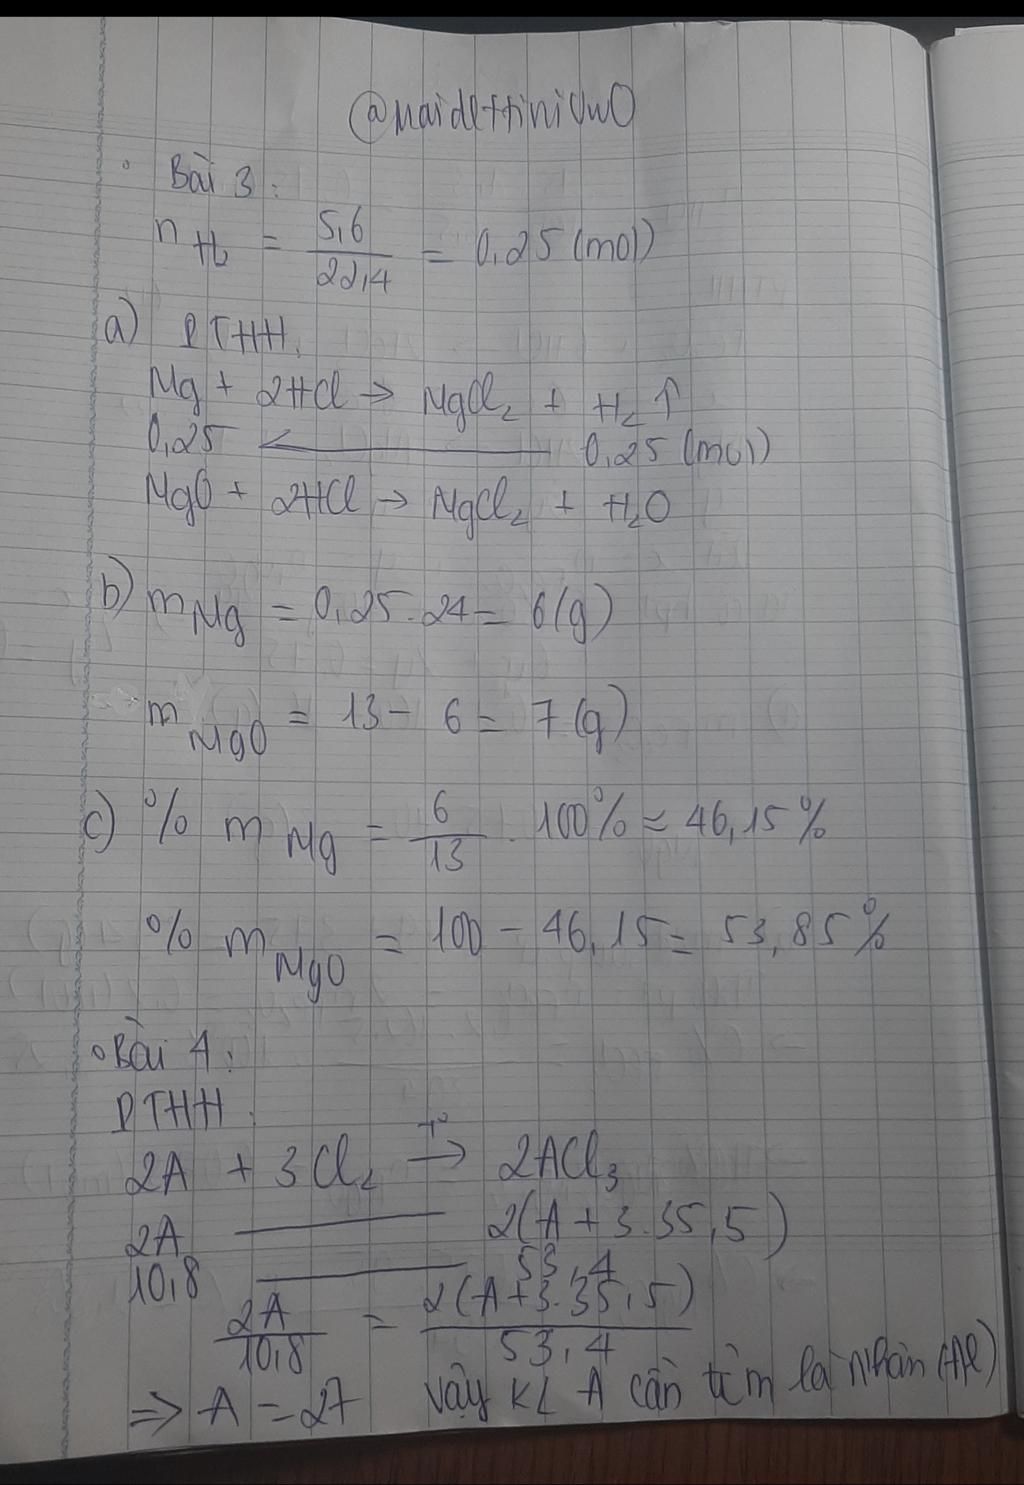 @maidettiniUwU
Bài 3:
n H₂ = 5,6 / 22,4 = 0,25 (mol)
a) PTHH:
Mg + 2HCl → MgCl₂ + H₂ ↑
0,25 ← 0,25 (mol)
MgO + 2HCl → MgCl₂ + H₂O
b) m Mg = 0,25 . 24 = 6 (g)
m MgO = 13 - 6 = 7 (g)
c) % m Mg = 6 / 13 . 100% ≈ 46,15%
% m MgO = 100 - 46,15 = 53,85%
Bài 4:
PTHH:
2A + 3Cl₂ t° → 2ACl₃
2A 2(A + 3.35,5)
10,8 53,4
2A / 10,8 = 2(A + 3.35,5) / 53,4
⇒ A = 27 Vậy KL A cần tìm là nhôm (Al)